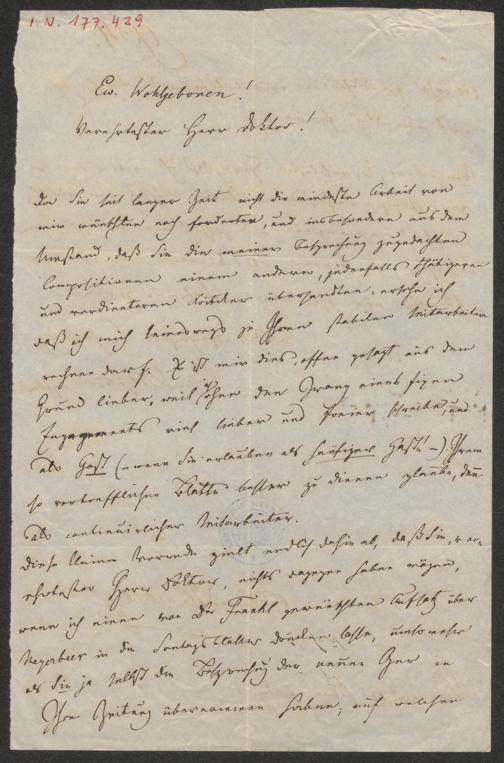 I. N. 177.439
Ew. Wohlgeboren!
Verehrtester Herr Doktor!
Da Sie seit langer Zeit nicht die mindeste Arbeit von
mir wünschten noch forderten, und insbesondere aus dem
Umstand, daß Sie die meiner Besprechung zugedachten
Compositionen einem anderen, jedenfalls thätigeren
und verdienteren Kritiker übersandten, ersehe ich
daß ich mich keineswegs zu Ihren stabilen Mitarbeitern
rechnen darf. Es ist mir dies, offen gesagt aus dem
Grund lieber, weil ich ohne den Zwang eines fixen
Engagements viel lieber und freier schreibe, und
als Gast (– wenn Sie erlauben als häufiger Gast! –) Ihrem
so vortrefflichen Blatte besser zu dienen glaube, denn
als continuirlicher Mitarbeiter.
Diese kleine Vorrede zielt endlich dahin ab, daß Sie, ver-
ehrtester Herr Doktor, nichts dagegen haben mögen,
wenn ich einen von Dr Frankl gewünschten Aufsatz über
Meyerbeer in die Sontagsblätter drucken lasse, umsomehr
als Sie ja selbst die Besprechung der neuen Oper in
Ihre Zeitung übernommen haben; auf welchen